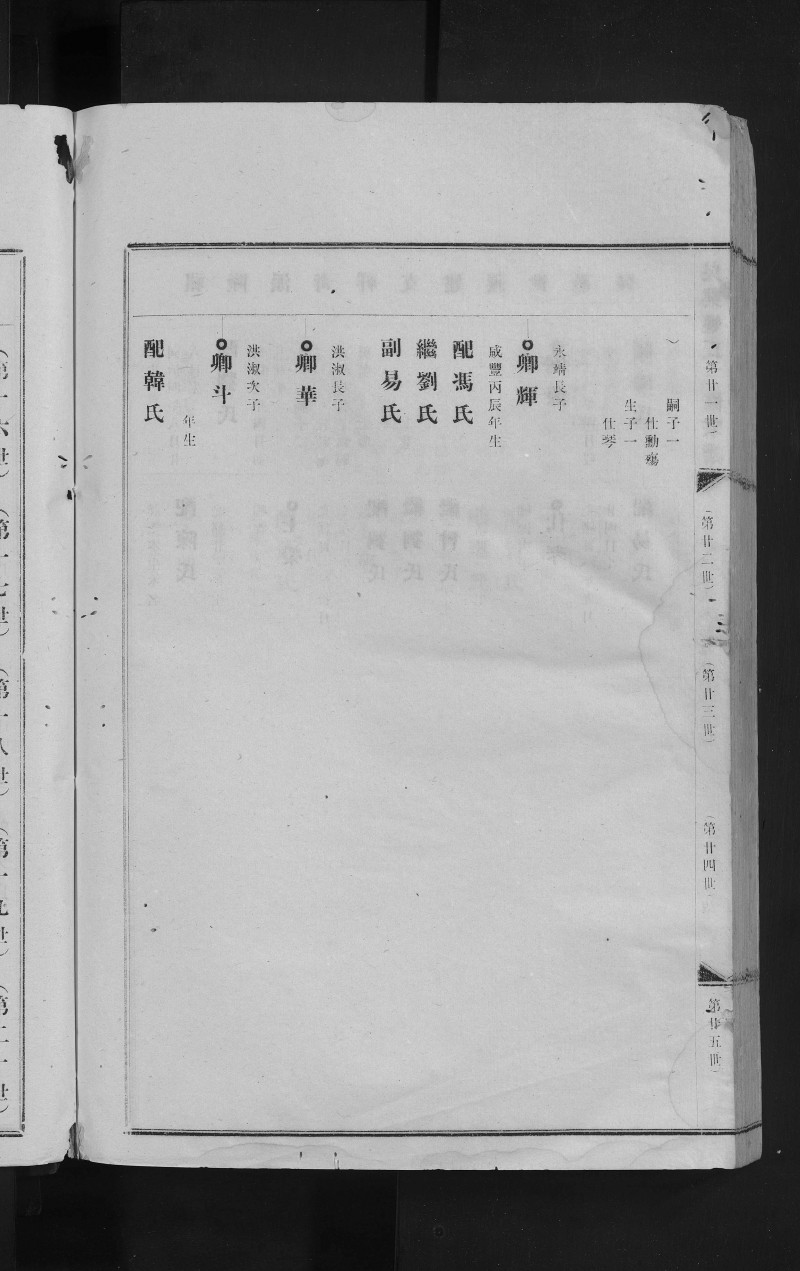 （第廿一世）
（第廿二世）
（第廿三世）
（第廿四世）
（第廿五世）
嗣子一
仕勳殤
生子一
仕琴
永靖長子
卿輝
咸豐丙辰年生
配馮氏
繼劉氏
副易氏
洪淑長子
卿華
洪淑次子
卿斗
年生
配韓氏
（第十六世）
（第十七世）
（第十八世）
（第十九世）
（第二十世）